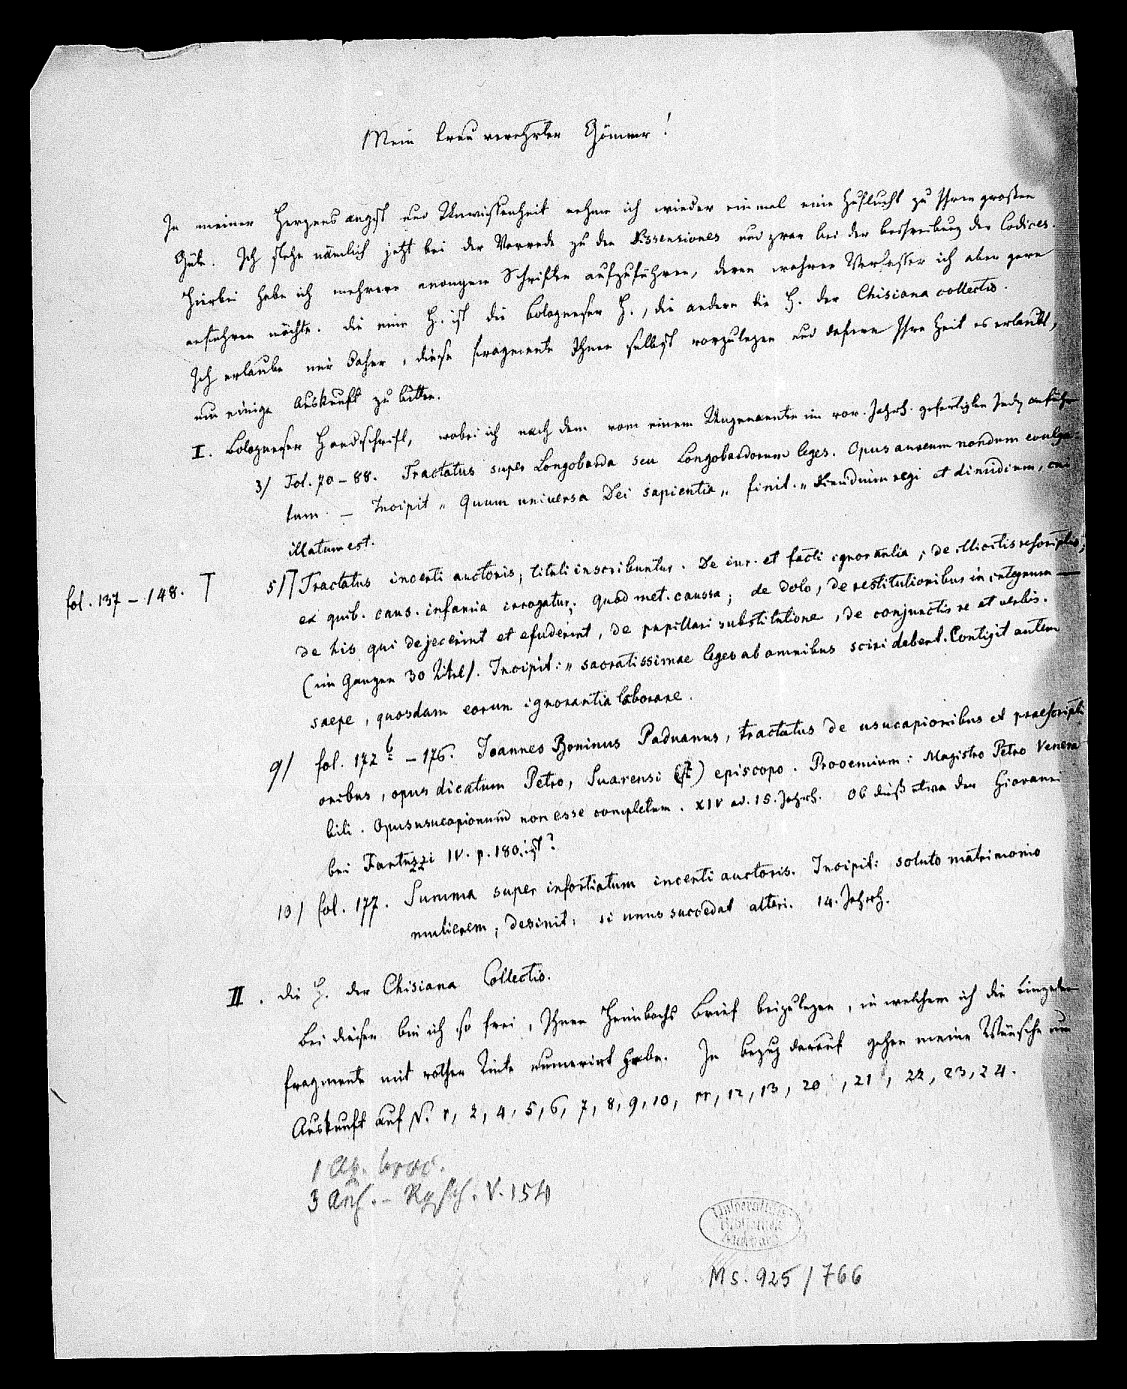 Mein treu verehrter Gönner!
In meiner Herzensangst und Unwissenheit nehme ich wieder einmal eine Zuflucht zu Ihrer großen
Güte. Ich stehe nämlich jetzt bei der Vorrede zu den Dissensiones und zwar bei der Beschreibung der Codices.
Hierbei habe ich mehrere anonyme Schriften aufzuführen, deren wahren Verfasser ich aber gern
erfahren möchte. Die eine H. ist die Bologneser H., die andere die H. der Chisiana collectio.
Ich erlaube mir daher, diese Fragmente Ihnen selbst vorzulegen und dafern Ihre Zeit es erlaubt,
um einige Auskunft zu bitten.
I. Bologneser Handschrift, wobei ich nach dem von einem Ungenannten im vor. Jahrh. gefertigten Index anführe
3/ Fol. 70–88. Tractatus super Longobarda seu Longobardorum leges. Opus aureum nondum evulga-
tum. – Incipit „Quum universa Dei sapientia„ finit. „ dimidium regi et dimidium, cui
illatum est.
fol. 137–148. T 5/ T Tractatus incerti auctoris, tituli inscribuntur. De iur. et facti ignorantia; de illicitis rescriptis;
ex quib. caus. infamia irrogatur; Quod met. caussa; de dolo, de restitutionibus in integrum —
de his qui dejecerint et efuderint, de pupillari substitutione, de conjunctis re et verbis.
(im Ganzen 30 Titel). Incipit: „ sacratissimae leges ab omnibus sciri debent. Contigit autem
saepe, quosdam eorum ignorantia laborare.
9/ fol. 172 b – 176. Joannes Boninus Paduanus, tractatus de usucapionibus et praescripti
onibus, opus dicatum Petro, Suarensi (?) episcopo. Prooemium: Magistro Petro Venera
bili. Opus usucapionum non esse completum. XIV ad. 15. Jahrh. Ob dieß etwa der Giovanni
bei Fantuzzi IV. p. 180. ist?
10/ fol. 177. Summa super infortiatum incerti auctoris. Incipit: soluto matrimonio
mulierem, desinit: si unus succedat alteri. 14. Jahrh.
II. Die H. der Chisiana Collectio.
Bei diesen bin ich so frei, Ihnen Heimbachs Brief beizulegen, in welchem ich die einzelnen
Fragmente mit rother Tinte numerirt habe. In bezug darauf gehen meine Wünsche um
Auskunft auf N. 1, 2, 4, 5, 6, 7, 8, 9, 10, 11, 12, 13, 20, 21, 22, 23, 24.
1 broc.
3 Anf. – V. 154
Universitäts
Bibliothek
Marburg
Ms. 925/766